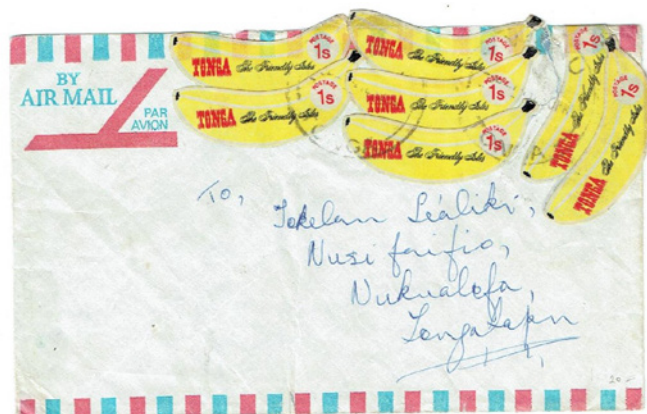 BY
AIR MAIL
PAR
AVION
TONGA The Friendly Isles POSTAGE 1s
TONGA The Friendly Isles POSTAGE 1s
TONGA The Friendly Isles POSTAGE 1s
TONGA The Friendly Isles POSTAGE 1s
TONGA The Friendly Isles POSTAGE 1s
TONGA The Friendly Isles POSTAGE 1s
TONGA The Friendly Isles POSTAGE 1s
To,
Nukualofa,
Tongatapu
20-